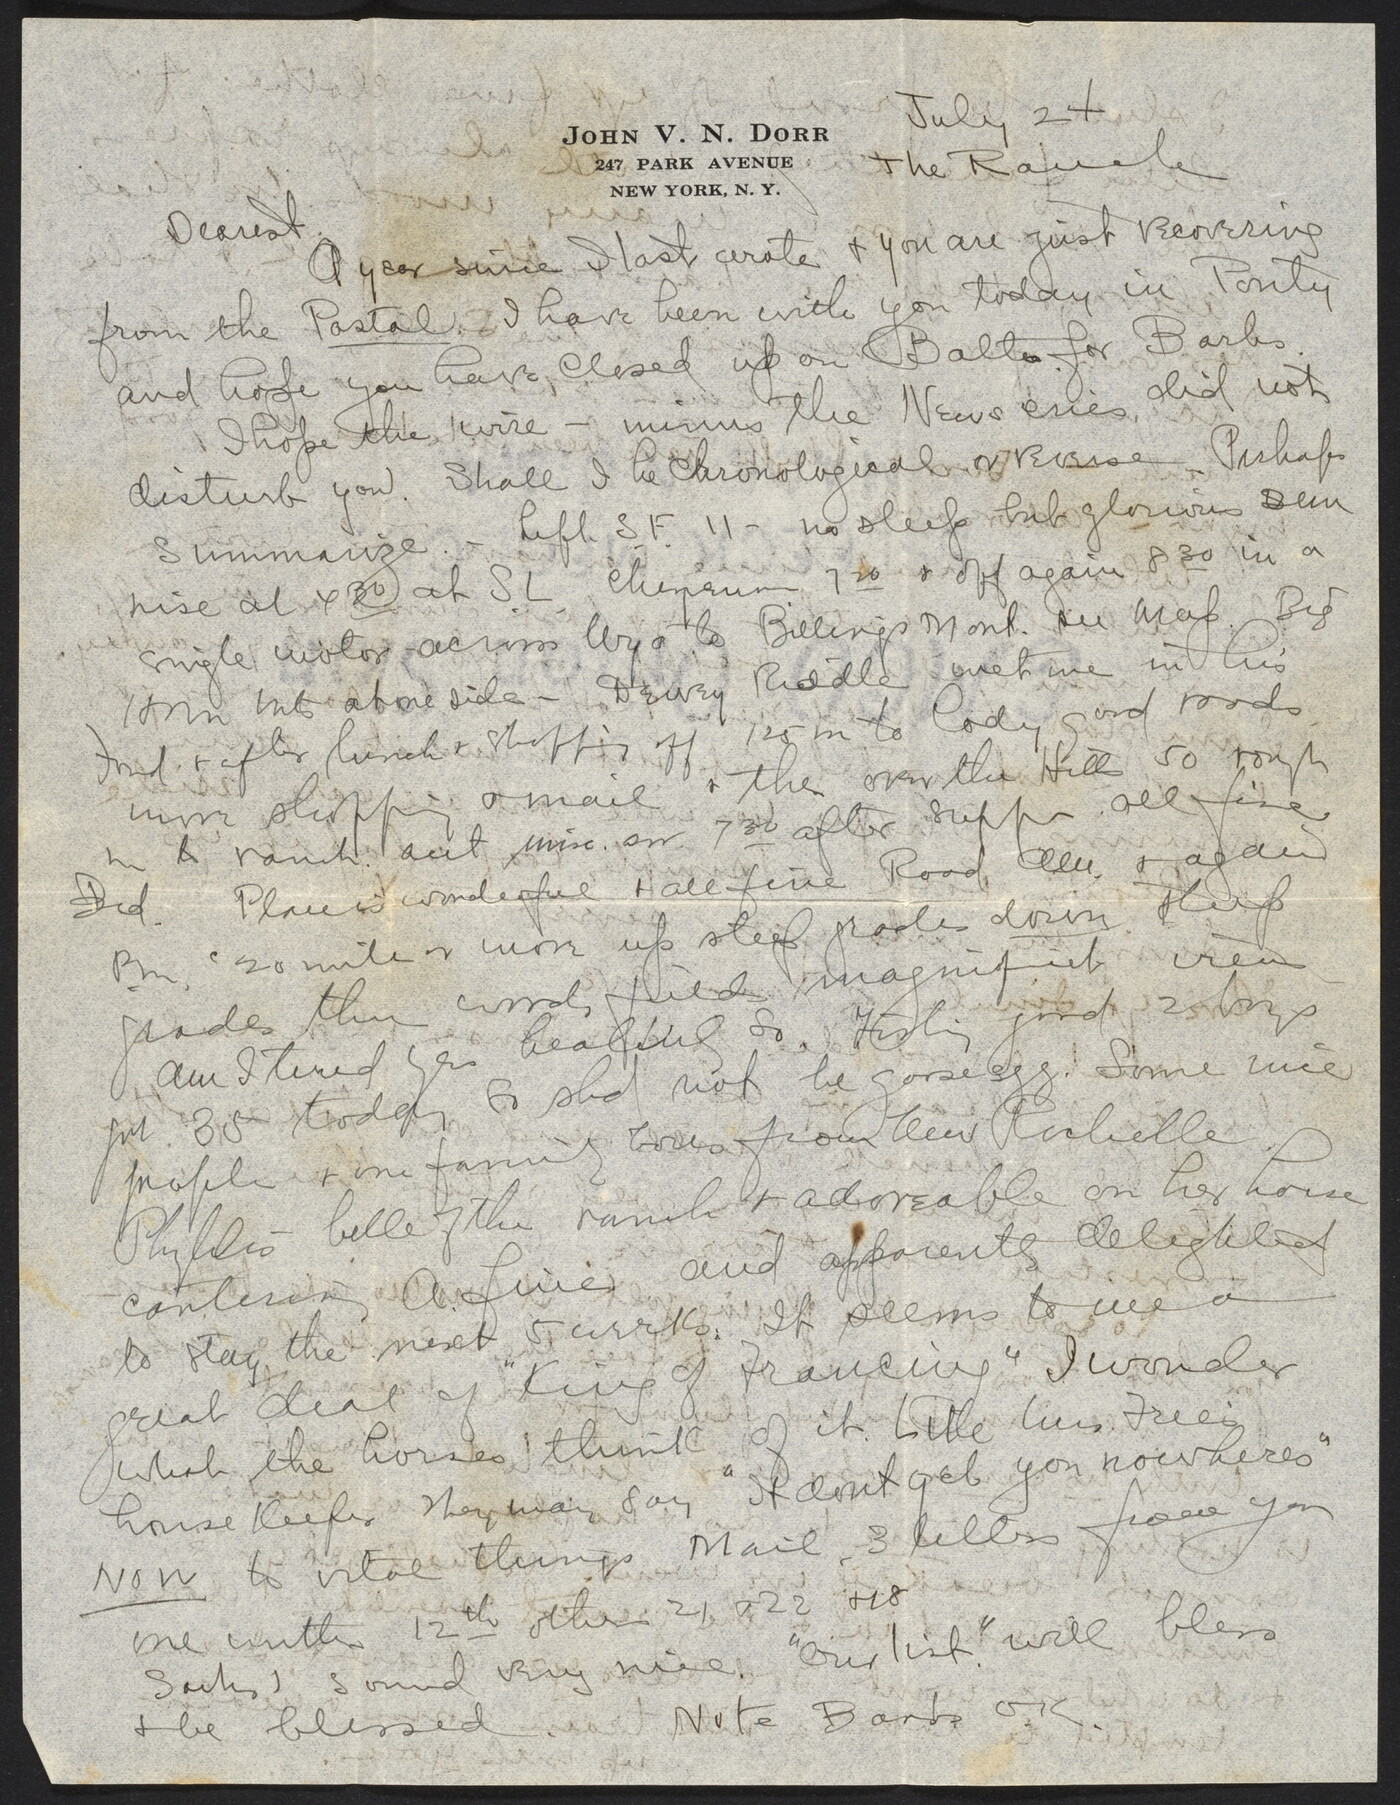 JOHN V. N. DORR
247 PARK AVENUE
NEW YORK, N. Y.
July 24
the Ranch
Dearest.
A year since I last wrote & you are just recovering
from the Postal. I have been with you today in
and hope you have closed up on Balto for Barbs.
I hope the wire – minus the News did not
disturb you. Shall I be chronological or reverse – Perhaps
summarize. – Left S.F. 11 – no sleep but glorious sun
rise at 4 30 at S L Cheyenne 7 20 & off again 8 30 in a
single motor across Wyo to Billings Mont. see Map. Big
Horn Mts above side – Dewey Riddle met me in his
Ford & after lunch & shopping off 125 m to Cody good roads
more shopping & mail & then over the Hills 50 rough
m to ranch. 7 30 after supper all fine
Place is wonderful & all fine Road & again
P.M. 20 mile or more up steep grades down steep
grades then woods fields magnificent views
Am I tired Yes healthily so. Fishing good 2 boys
got 35 today so shd not be goose egg. Some nice
people & one family from New Rochelle.
Phyllis – belle of the ranch & adoreable on her horse
cantering A. fine and apparently delighted
to stay the next 5 weeks. It seems to me a
great deal of "King of Francing" I wonder
what the horses think of it. Little
house keeper They may say "It dont get you nowheres"
NOW to vital things Mail 3 letters from you
one written 12th others 21 & 22 & 18
sound very nice. "Our list." will bless
& be blessed Note Barbs O.K.